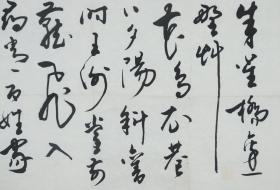 朱雀橋邊
野艸
花烏衣巷
口夕陽斜舊
時王謝堂前
燕飛入
尋常百姓家